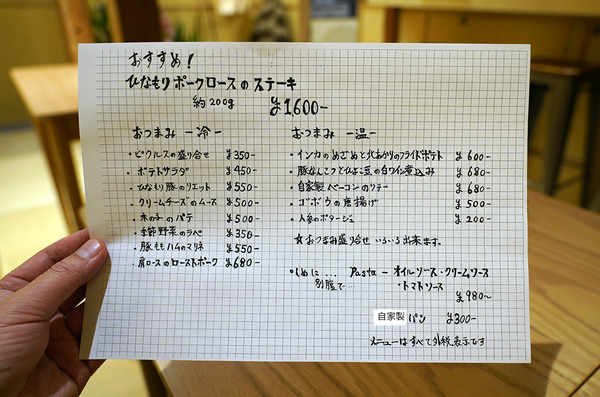 おすすめ!
ひなもりポークロースのステーキ
約200g ¥1600-
おつまみ -冷-
・ピクルスの盛り合せ ¥350-
・ポテトサラダ ¥450-
・ひなもり豚のリエット ¥550-
・クリームチーズのムース ¥500-
・木の子のパテ ¥500-
・季節野菜のラペ ¥350-
・豚ももハムのマリネ ¥550-
・肩ロースのローストポーク ¥680-
おつまみ -温-
・インカのめざめと北あかりのフライドポテト ¥600-
・豚なんこつとひよこ豆の白ワイン煮込み ¥680-
・自家製ベーコンのソテー ¥680-
・ゴボウの唐揚げ ¥500-
・人参のポタージュ ¥200-
☆おつまみ盛り合せ いろいろ出来ます。
しめに... Pasta - オイルソース・クリームソース
別腹で... ・トマトソース
¥980~
自家製 パン ¥300-
メニューはすべて外税表示です